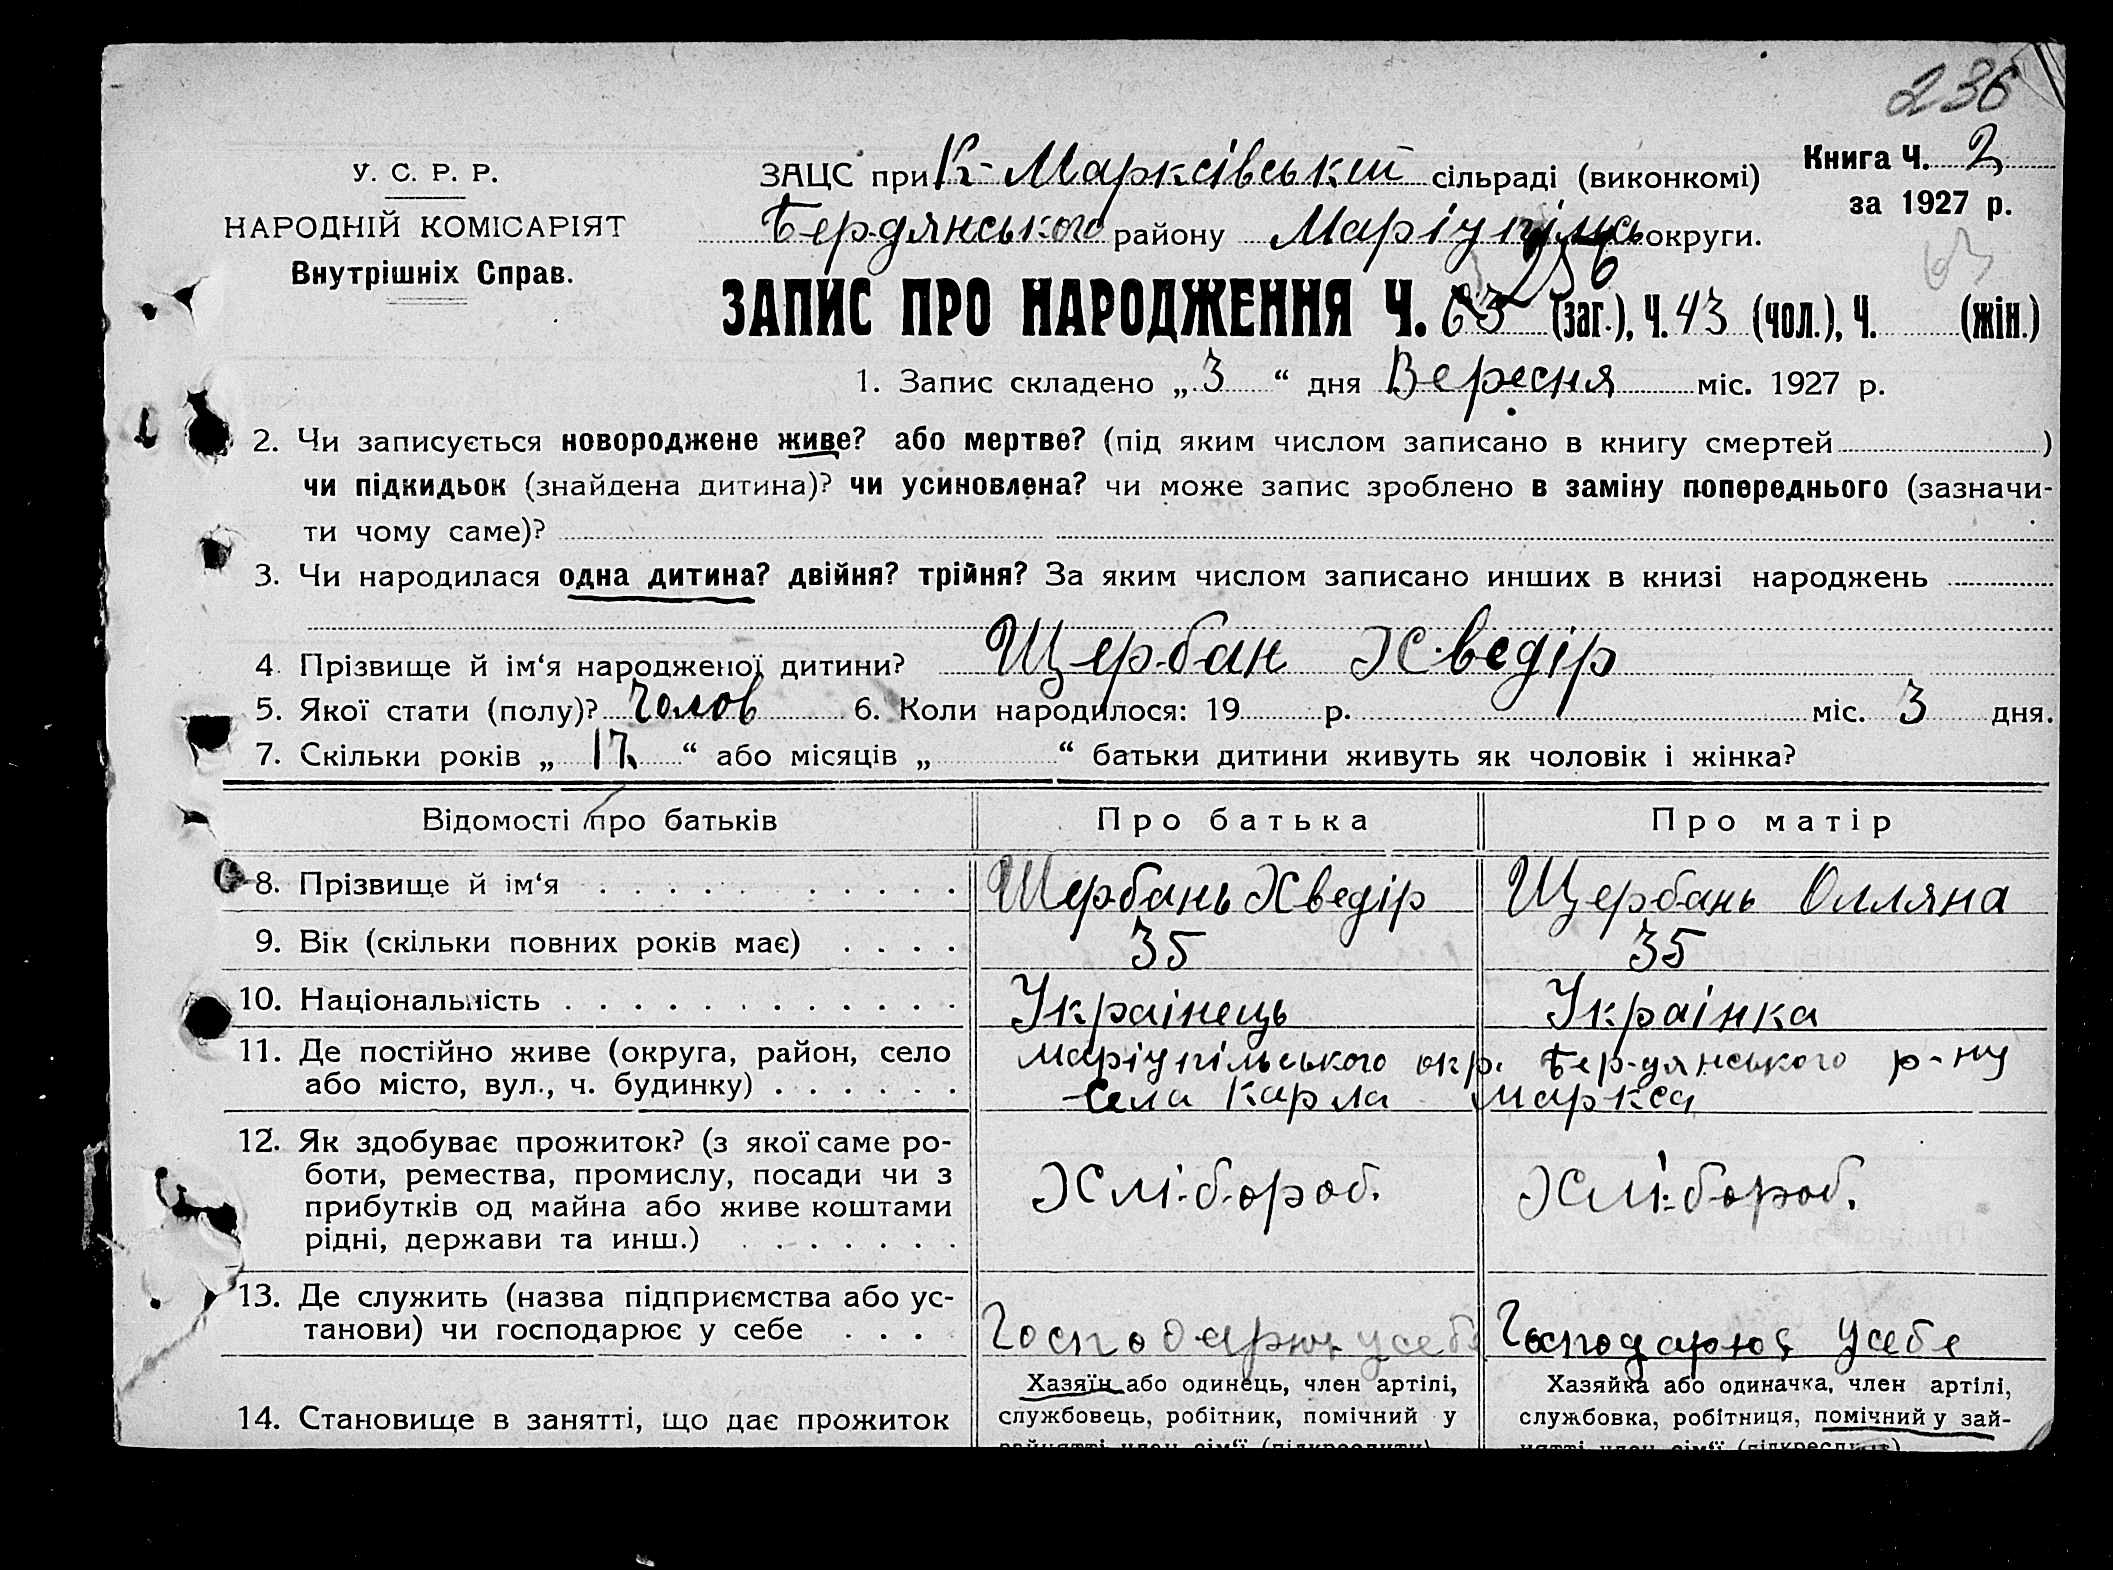 236
У. С. Р. Р.
НАРОДНІЙ КОМІСАРІЯТ
Внутрішніх Справ.
ЗАЦС при К-Марксівській сільраді (виконкомі)
Книга Ч. 2
за 1927 р.
Бердянського району Маріупільсь округи.
63
256
ЗАПИС ПРО НАРОДЖЕННЯ Ч. 63 (заг.), Ч. 43 (чол.), Ч. (жін.)
1. Запис складено „ 3 “ дня Вересня міс. 1927 р.
2. Чи записується новороджене живе? або мертве? (під яким числом записано в книгу смертей )
чи підкидьок (знайдена дитина)? чи усиновлена? чи може запис зроблено в заміну попереднього (зазначи-
ти чому саме)?
3. Чи народилася одна дитина? двійня? трійня? За яким числом записано инших в книзі народжень
4. Прізвище й ім‘я народженої дитини? Щербан Хведір
5. Якої стати (полу)? Чолов 6. Коли народилося: 19 р. міс. 3 дня.
7. Скільки років „ 17 “ або місяців „ “ батьки дитини живуть як чоловік і жінка?
Відомості про батьків Про батька Про матір
8. Прізвище й ім‘я Щербань Хведір Щербань Олляна
9. Вік (скільки повних років має) 35 35
10. Національність Украінець Украінка
11. Де постійно живе (округа, район, село Маріупільського окр. Бердянського р-ну
або місто, вул., ч. будинку) Села Карла Маркса
12. Як здобуває прожиток? (з якої саме ро-
боти, ремества, промислу, посади чи з Хлібороб. Хлібороб.
прибутків од майна або живе коштами
рідні, держави та инш.)
13. Де служить (назва підприємства або ус-
танови) чи господарює у себе Господарює усебе Господарює усебе
Хазяїн або одинець, член артілі, Хазяйка або одиначка, член артілі,
14. Становище в занятті, що дає прожиток службовець, робітник, помічний у службовка, робітниця, помічний у зай-
зайнятті член сім‘ї (підкреслити) нятті член сім‘ї (підкреслить)